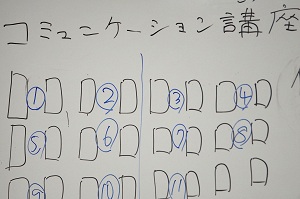 コミュニケーション講座
① ② ③ ④
⑤ ⑥ ⑦ ⑧
⑨ ⑩ ⑪